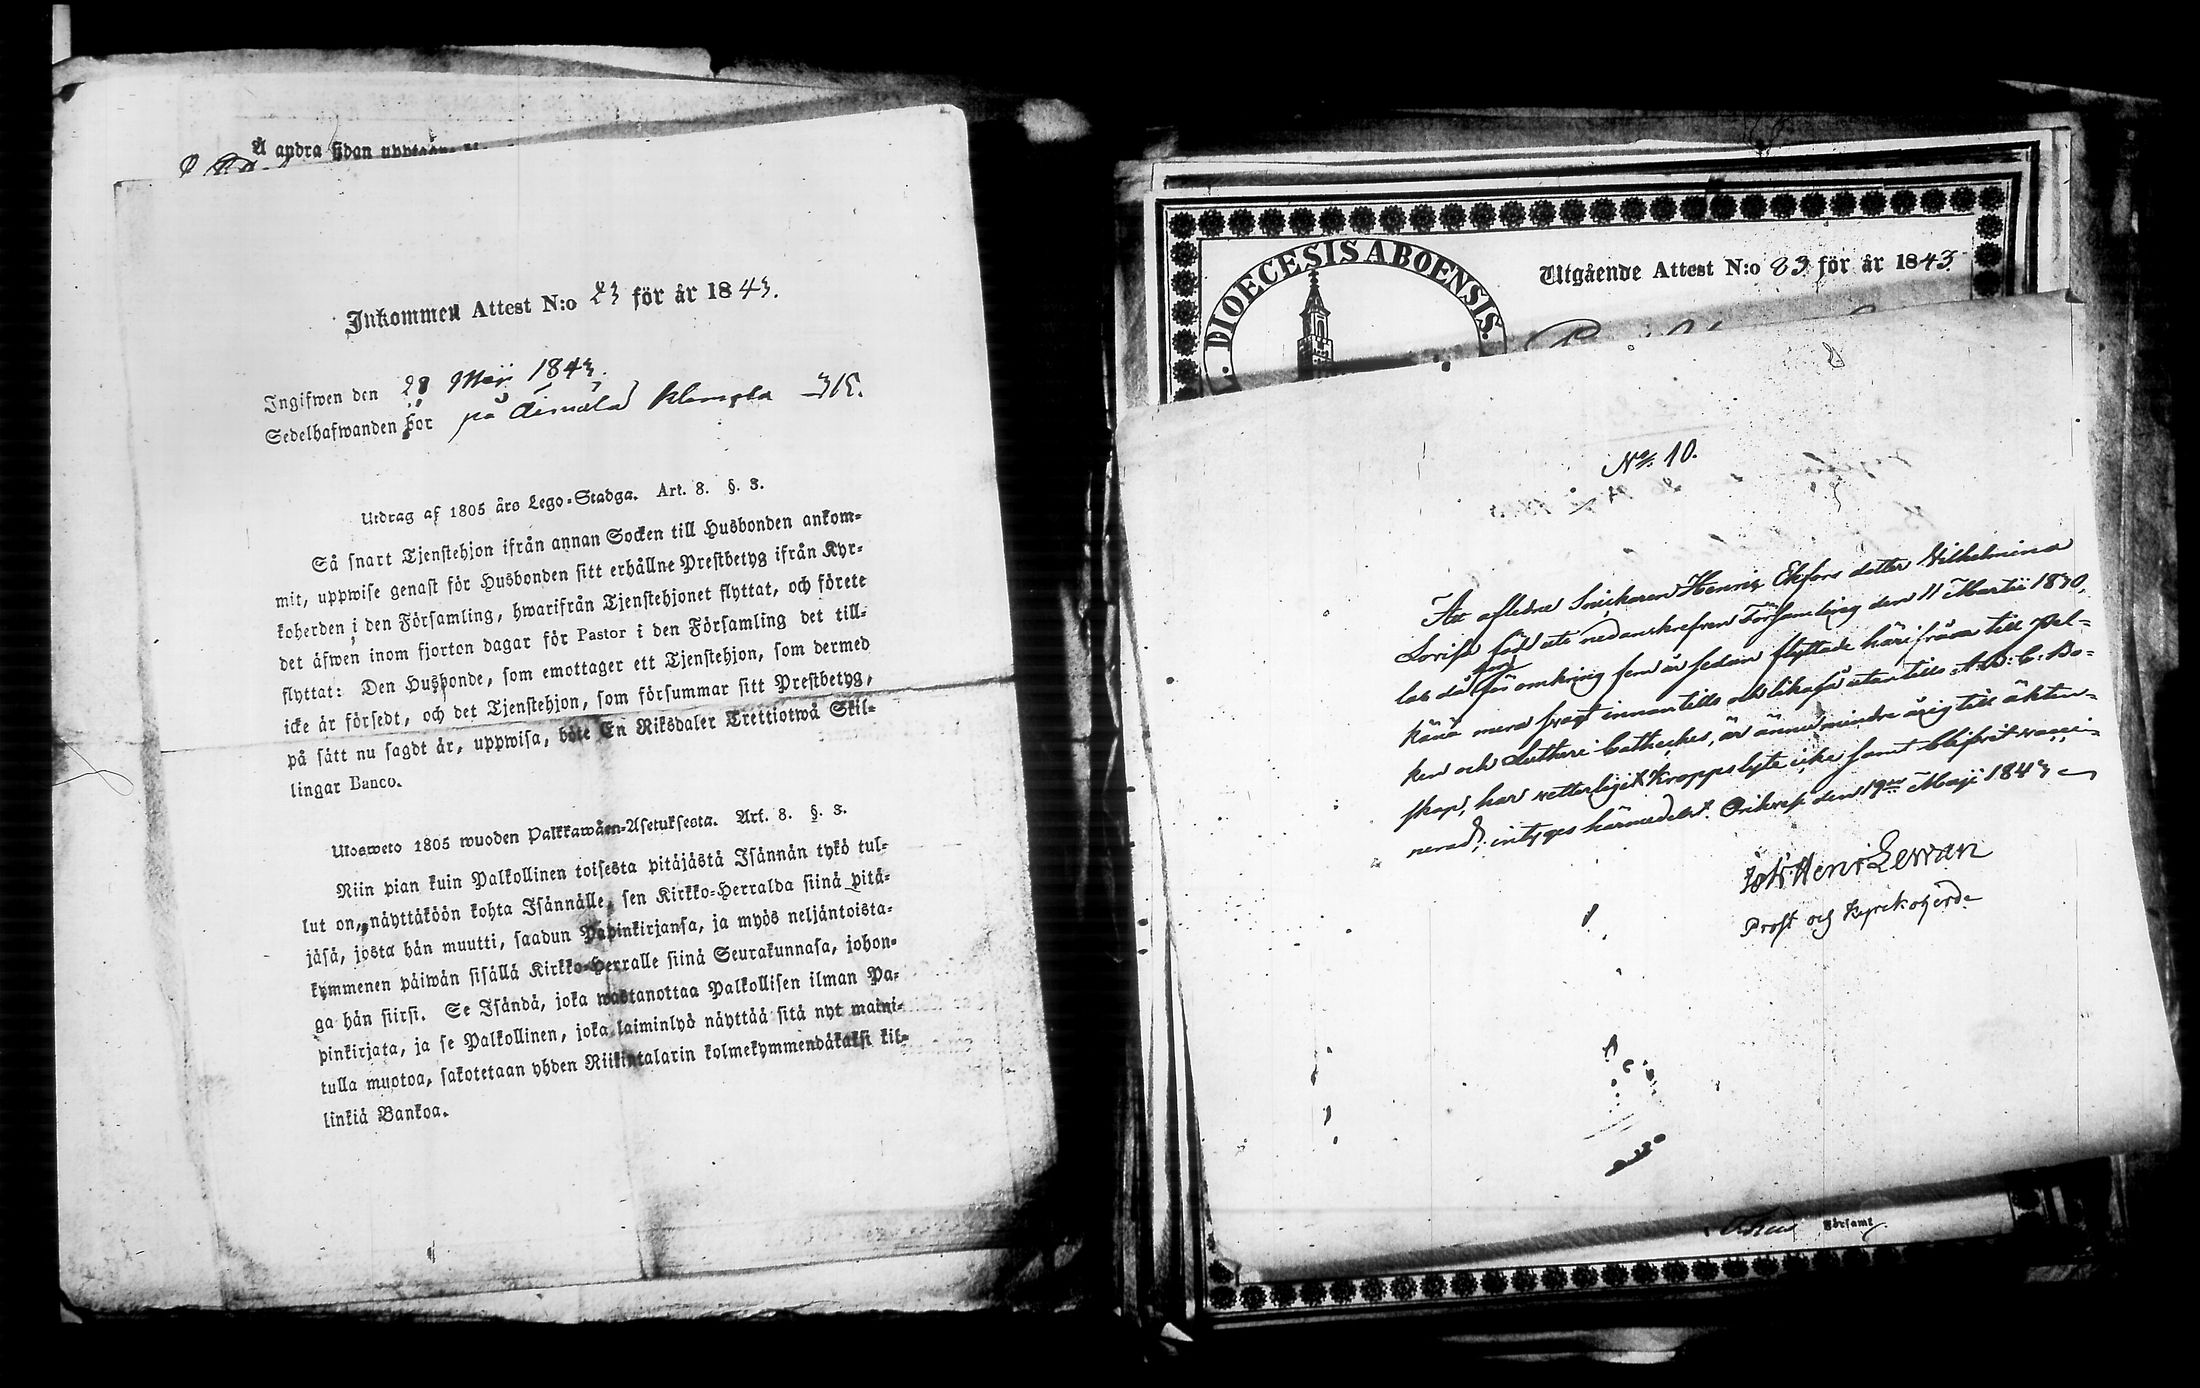 Å andra sidan upptagne
Inkommen Attest N:o 23 för år 1843.
Ingifwen den 28 Maji 1843.
Sedelhafwanden bor på
Utdrag af 1805 års Lego-Stadga. Art. 8. §. 3.
Så snart Tjenstehjon ifrån annan Socken till Husbonden ankom-
mit, uppwise genast för Husbonden sitt erhållne Prestbetyg ifrån Kyr-
koherden i den Församling, hwarifrån Tjenstehjonet flyttat, och förete
det äfwen inom fjorton dagar för Pastor i den Församling det till-
flyttat: Den Husbonde, som emottager ett Tjenstehjon, som dermed
icke är försedt, och det Tjenstehjon, som försummar sitt Prestbetyg,
på sätt nu sagdt är, uppwisa, böte En Riksdaler Trettiotwå Skil-
lingar Banco.
Utosweto 1805 wuoden Palkkawäen-Asetuksesta. Art. 8. §. 3.
Niin pian kuin Palkollinen toisesta pitäjästä Isännän tykö tul-
lut on, näyttäköön kohta Isännälle, sen Kirkko-Herralda siinä pitä-
jäsä, josta hän muutti, saadun Papinkirjansa, ja myös neljäntoista-
kymmenen päiwän sisällä Kirkko-Herralle siinä Seurakunnasa, johon-
ga hän siirsi. Se Isändä, joka wastanottaa Palkollisen ilman Pa-
pinkirjata, ja se Palkollinen, joka laiminlyö näyttää sitä nyt maini-
tulla muotoa, sakotetaan yhden Riikintalarin kolmekymmendäkaksi kil-
linkiä Bankoa.
DIOECESIS ABOENSIS.
Utgående Attest N:o 83 för år 1843
No. 10.
Att aflidne Snickaren Henric Ekfors dotter Wilhelmina
Lovisa född uti nedanskrefven Församling den 11 Martii 1830,
lat då hon för omkring fem år sedan flyttade härifrån till Pal-
käne mera svagt innantill och likaså utantill A.B.C. Bo-
ken och Lutheri Catheches, är ännu mindre årig till äkten-
skap, har vetterligit kroppslyte icke samt blifvit vacci-
nerad; intygas härmedelst. Orihvesi den 19de Maji 1843
Joh: Henr: Lewan
Prost och Kyrckoherde
Församl.